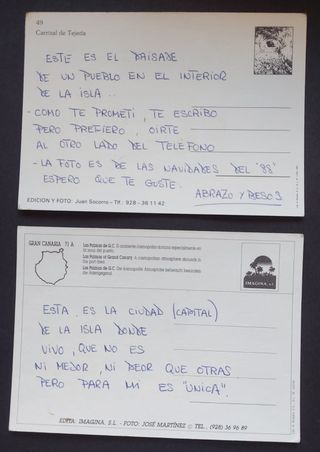 49
Carrizal de Tejeda
ESTE ES EL PAISAJE
DE UN PUEBLO EN EL INTERIOR
DE LA ISLA..
- COMO TE PROMETI, TE ESCRIBO
PERO PREFIERO, OIRTE
AL OTRO LADO DEL TELEFONO
- LA FOTO ES DE LAS NAVIDADES DEL "98"
ESPERO QUE TE GUSTE.
ABRAZO Y BESOS
EDICION Y FOTO: Juan Socorro - Tlf.: 928 - 36 11 42
GRAN CANARIA 71 A
Las Palmas de G.C. El ambiente cosmopolita abunda especialmente en
la zona del puerto.
Las Palmas of Grand Canary A cosmopolitan atmosphere abounds in
the port area.
Las Palmas de G.C.
IMAGINA, S.L.
ESTA ES LA CIUDAD (CAPITAL)
DE LA ISLA DONDE
VIVO, QUE NO ES
NI MEJOR, NI PEOR QUE OTRAS
PERO PARA MI ES "UNICA".
EDITA: IMAGINA, S.L. - FOTO: JOSÉ MARTÍNEZ © TEL., (928) 36 96 89